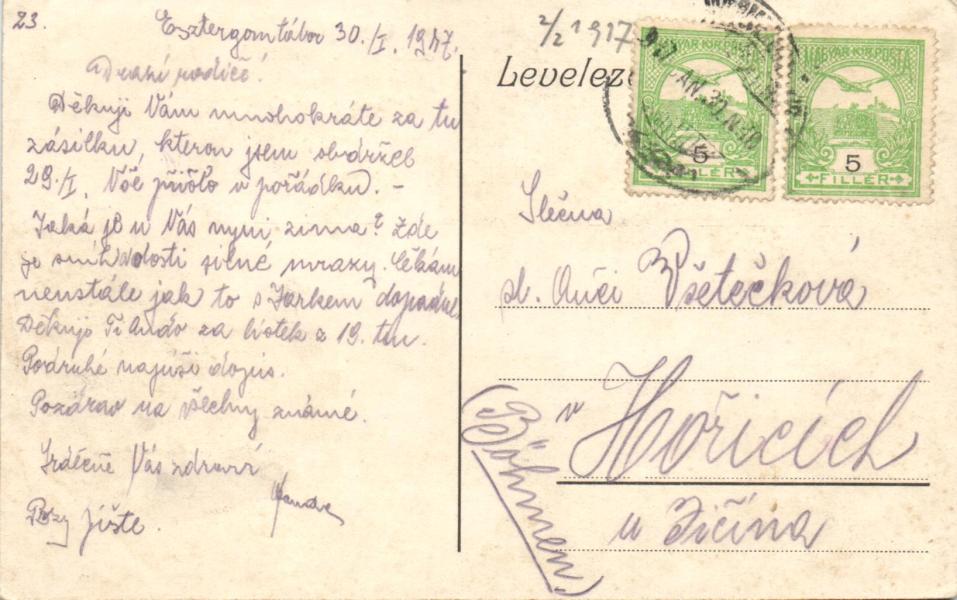 23.
Esztergomtábor 30./I. 1917.
Drazí rodiče!
Děkuji Vám mnohokráte za tu
zásilku, kterou jsem obdržel
29./I. Vše přišlo v pořádku. -
Jaká je u Vás nyní zima? Zde
je silné mrazy. Čekám
neustále jak to s Jarkem dopadne.
Děkuji Ti Ando za lístek z 19. tm.
Podruhé napíši dopis.
Pozdrav na všechny známé.
Srdečně Vás zdraví
Brzy pište.
2/2 1917
Levelez
917 JAN. 30.
MAGYAR KIR. POSTA
5
FILLÉR
MAGYAR KIR. POSTA
5
FILLÉR
Slečna
sl. Anči Všetečková
v Hořicích
u Jičína
(Böhmen)